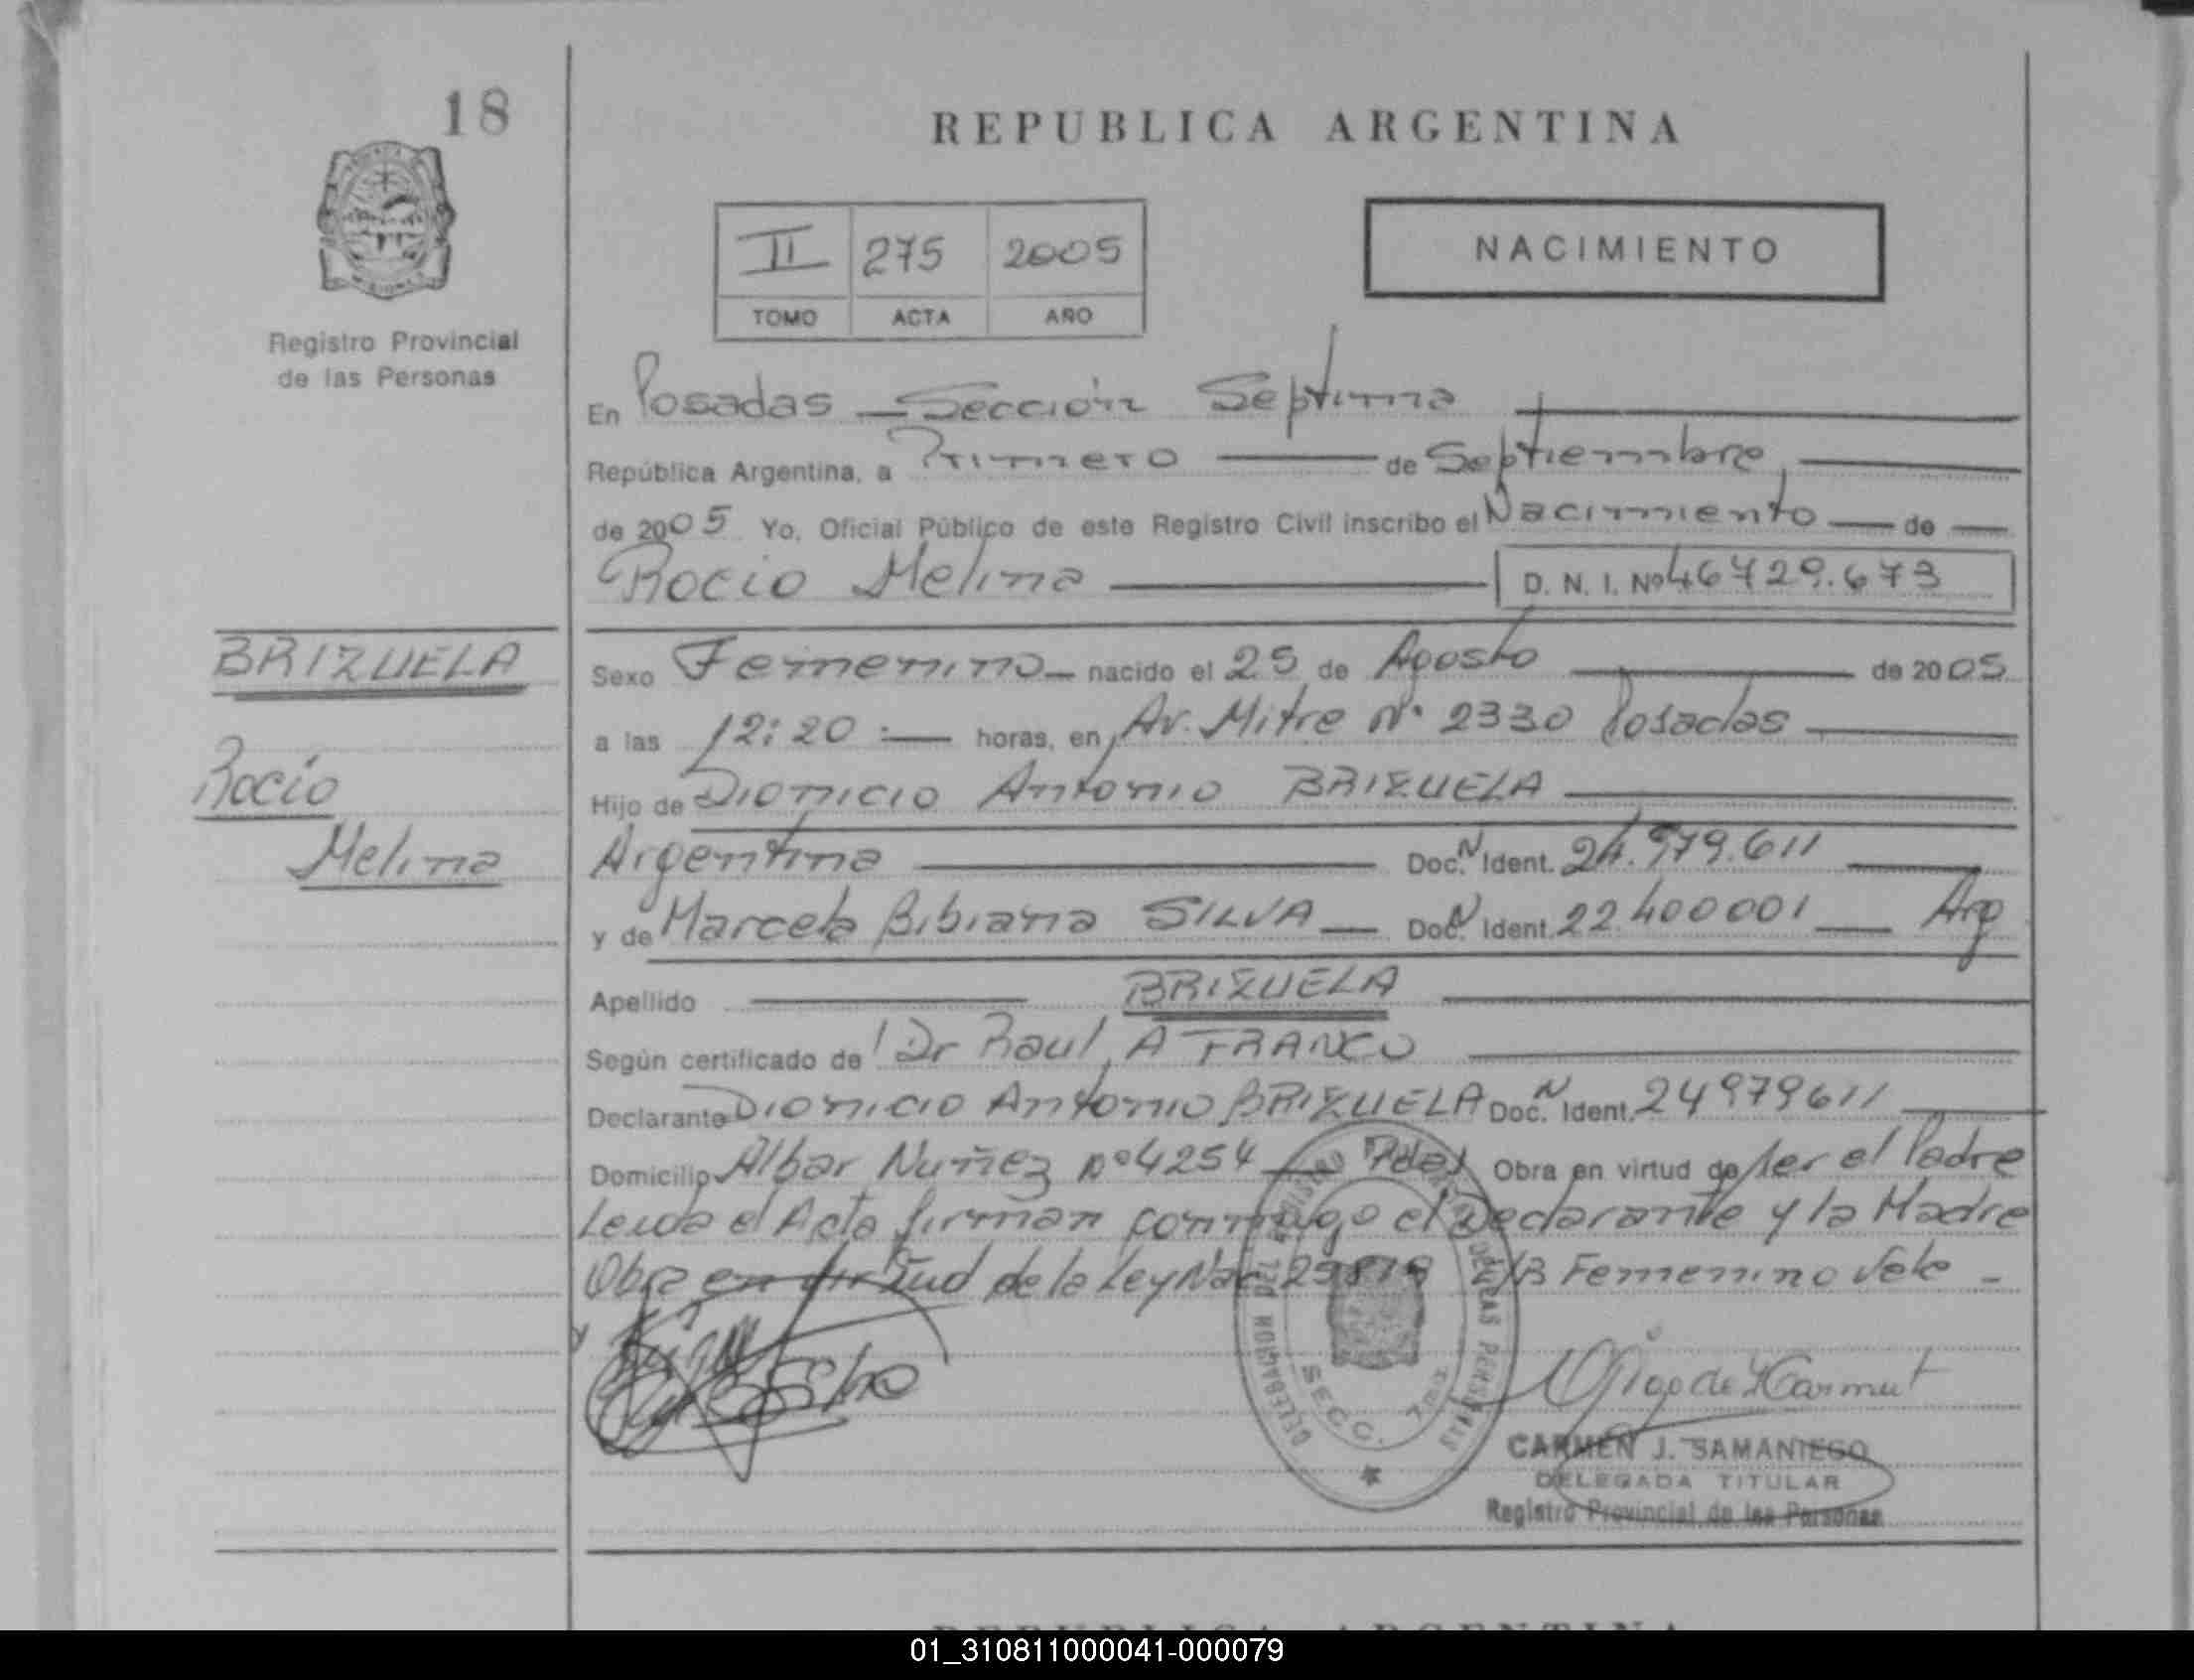 18
REPUBLICA ARGENTINA
II 275 2005
TOMO ACTA AÑO
NACIMIENTO
Registro Provincial
de las Personas
En Posadas — Sección Septima
República Argentina, a Primero — de Septiembre,
de 2005 Yo, Oficial Público de este Registro Civil inscribo el Nacimiento — de —
Rocio Melina — D. N. I. Nº 46729.673
BRIZUELA
Rocio
Melina
Sexo Femenino — nacido el 25 de Agosto — de 2005
a las 12:20 :— horas, en Av. Mitre Nº 2330 Posadas
Hijo de Dionicio Antonio BRIZUELA
Argentina — Doc. N Ident. 24.979.611
y de Marcela Bibiana SILVA — Doc. N Ident. 22400001 — Arg
Apellido — BRIZUELA
Según certificado de Dr Raul A FRANCO
Declarante Dionicio Antonio BRIZUELA Doc. N Ident. 24979611
Domicilio Albar Nuñez nº 4254 — Pdas Obra en virtud de ser el Padre
Leida el Acta firman conmigo el Declarante y la Madre
Obra en virtud de la Ley Nac Femenino Vale -
DELEGACION DEL REGISTRO DE LAS PERSONAS
SECC. 7ma
CARMEN J. SAMANIEGO
DELEGADA TITULAR
Registro Provincial de las Personas
REPUBLICA ARGENTINA
01_310811000041-000079